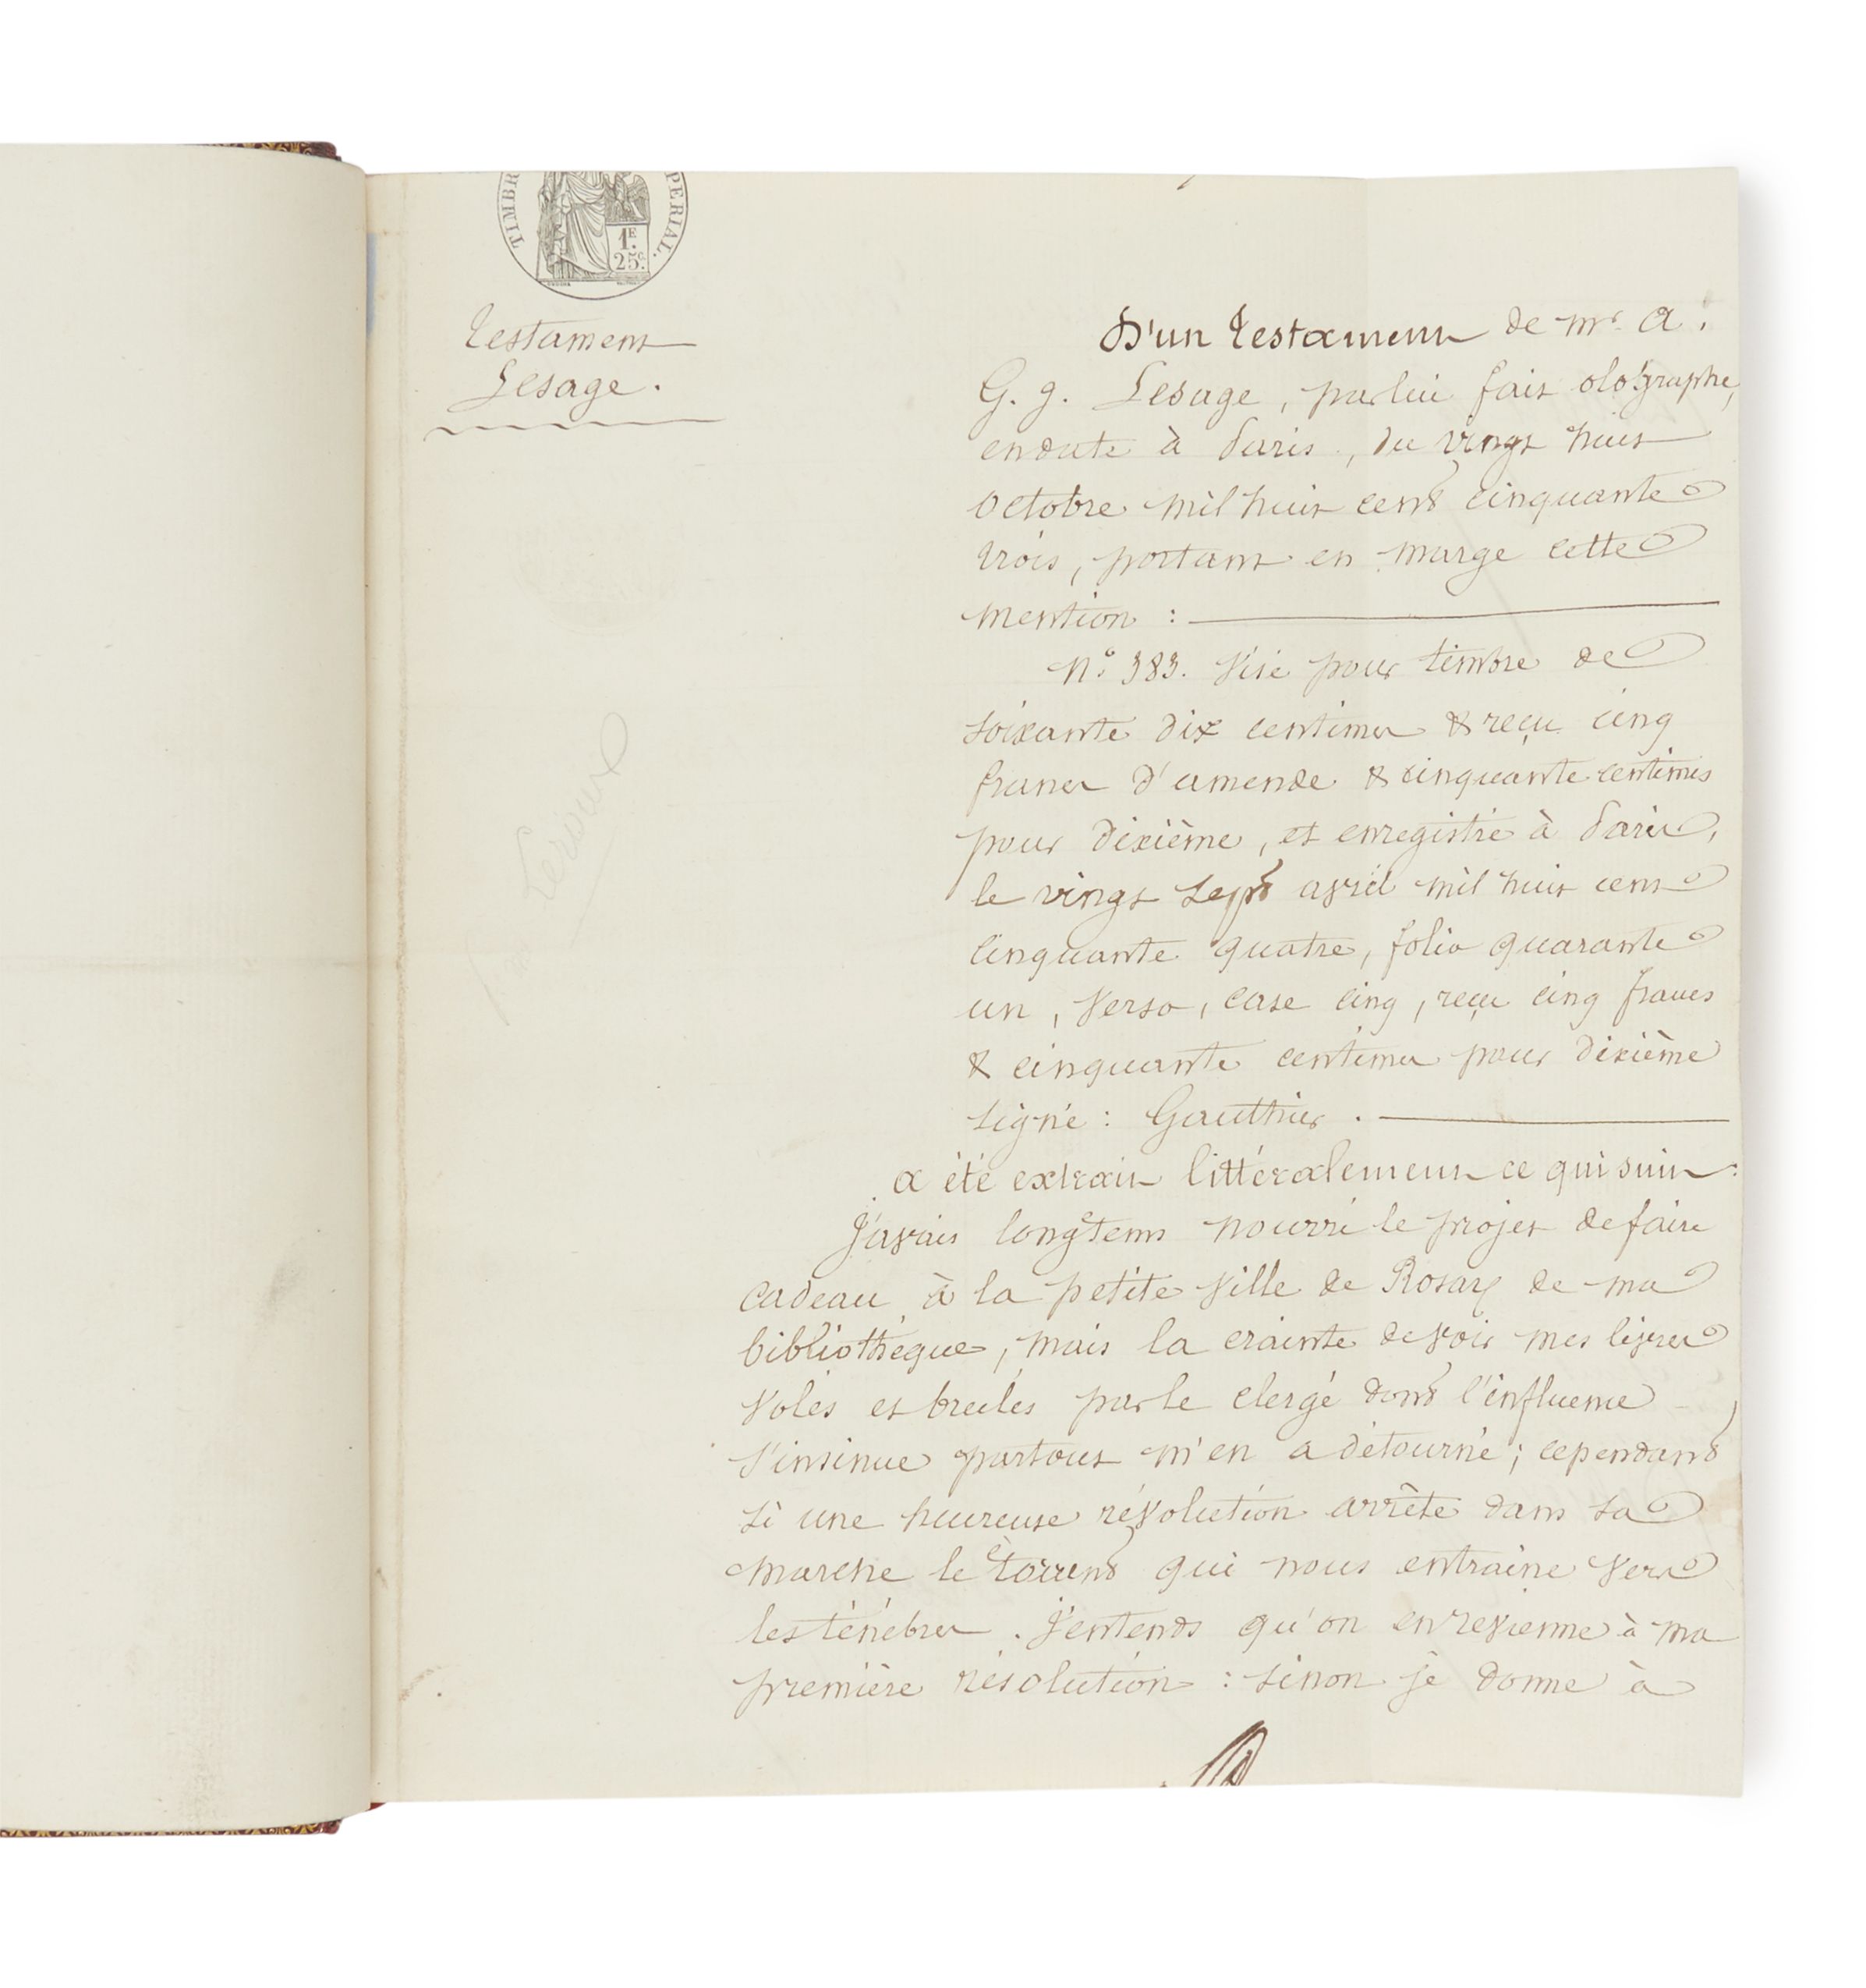 TIMBR
PERIAL.
1F.
25c.
Testament
Lesage.
D'un Testament de Mr. A.
G. G. Lesage, par lui fait olographe,
en date à Paris, du vingt huit
octobre mil huit cent cinquante
trois, portant en marge cette
mention :
No. 383. Visé pour timbre de
soixante dix centimes & reçu cinq
francs d'amende & cinquante centimes
pour dixième, et enregistré à Paris,
le vingt sept avril mil huit cent
cinquante quatre, folio quarante
un, verso, case cinq, reçu cinq francs
& cinquante centimes pour dixième
signé : Gauthier.
a été extrait littéralement ce qui suit :
J'avais longtems nourri le projet de faire
cadeau à la petite ville de Rosay de ma
bibliothèque, mais la crainte de voir mes livres
volés et brulés par le clergé dont l'influence
s'insinue partout m'en a détourné ; cependant
si une heureuse révolution arrête dans sa
marche le torrent qui nous entraine vers
les ténèbres. J'entends qu'on en revienne à ma
première résolution : sinon je donne à